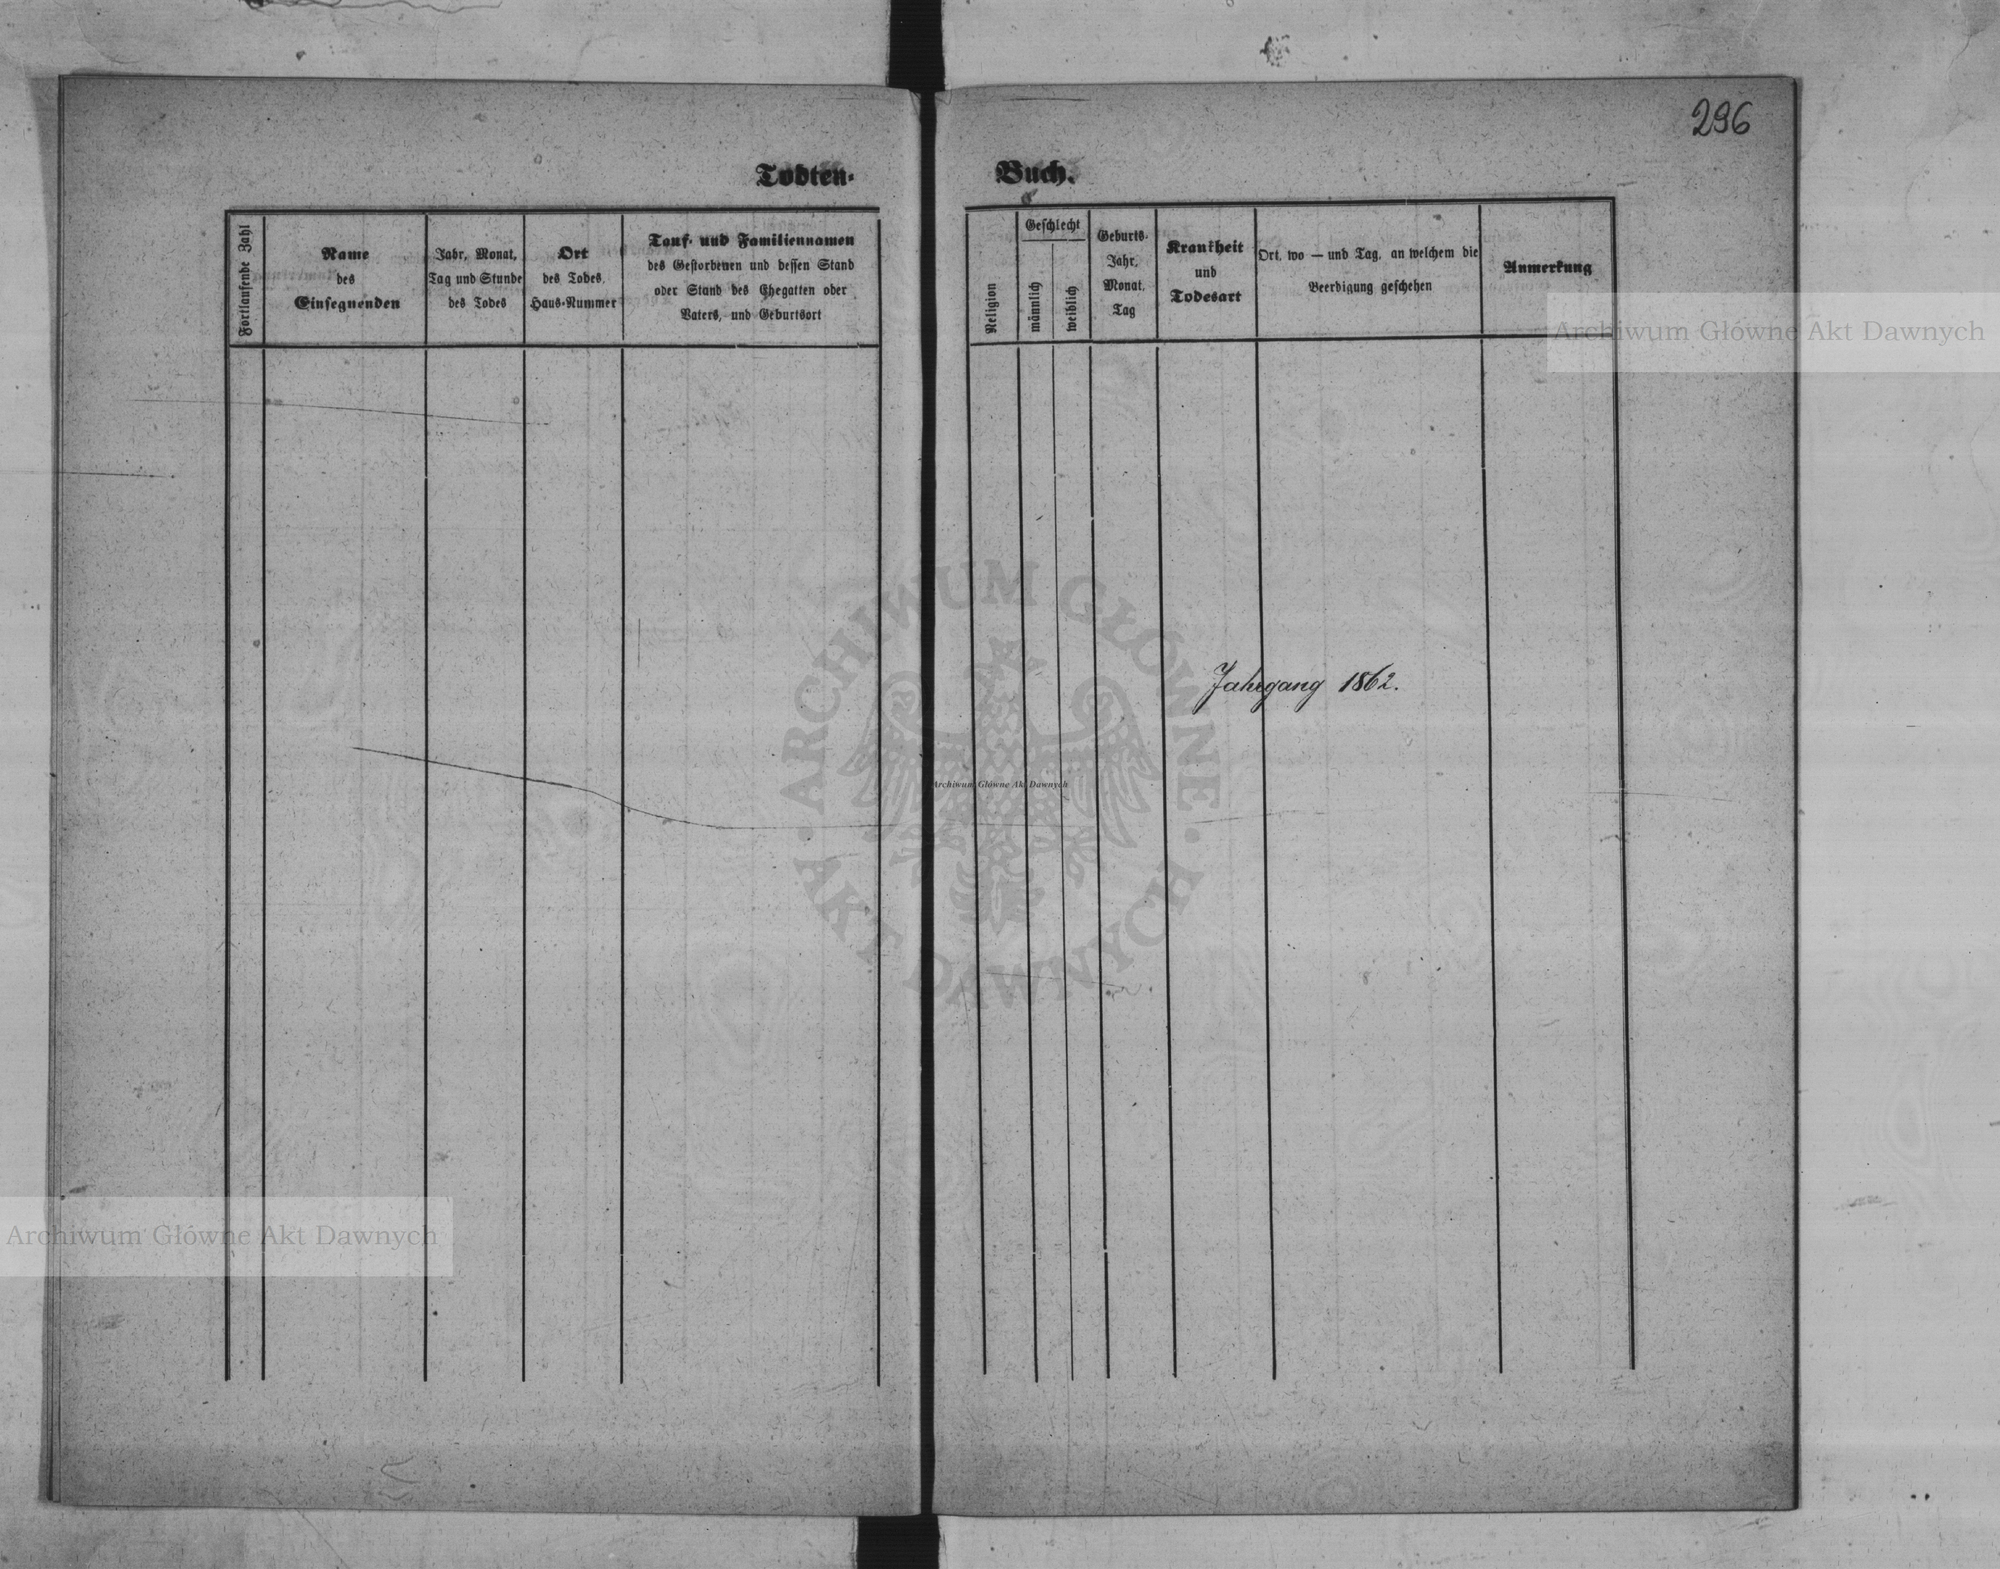 296
Todten-
Buch.
Fortlaufende Zahl
Name
des
Einsegnenden
Jahr, Monat,
Tag und Stunde
des Todes
Ort
des Todes,
Haus-Nummer
Tauf- und Familiennamen
des Gestorbenen und dessen Stand
oder Stand des Ehegatten oder
Vaters, und Geburtsort
Religion
Geschlecht
männlich
weiblich
Geburts-
Jahr,
Monat,
Tag
Krankheit
und
Todesart
Ort, wo — und Tag, an welchem die
Beerdigung geschehen
Anmerkung
Archiwum Główne Akt Dawnych
Jahrgang 1862.
ARCHIWUM GŁÓWNE
AKT DAWNYCH
Archiwum Główne Akt Dawnych
Archiwum Główne Akt Dawnych